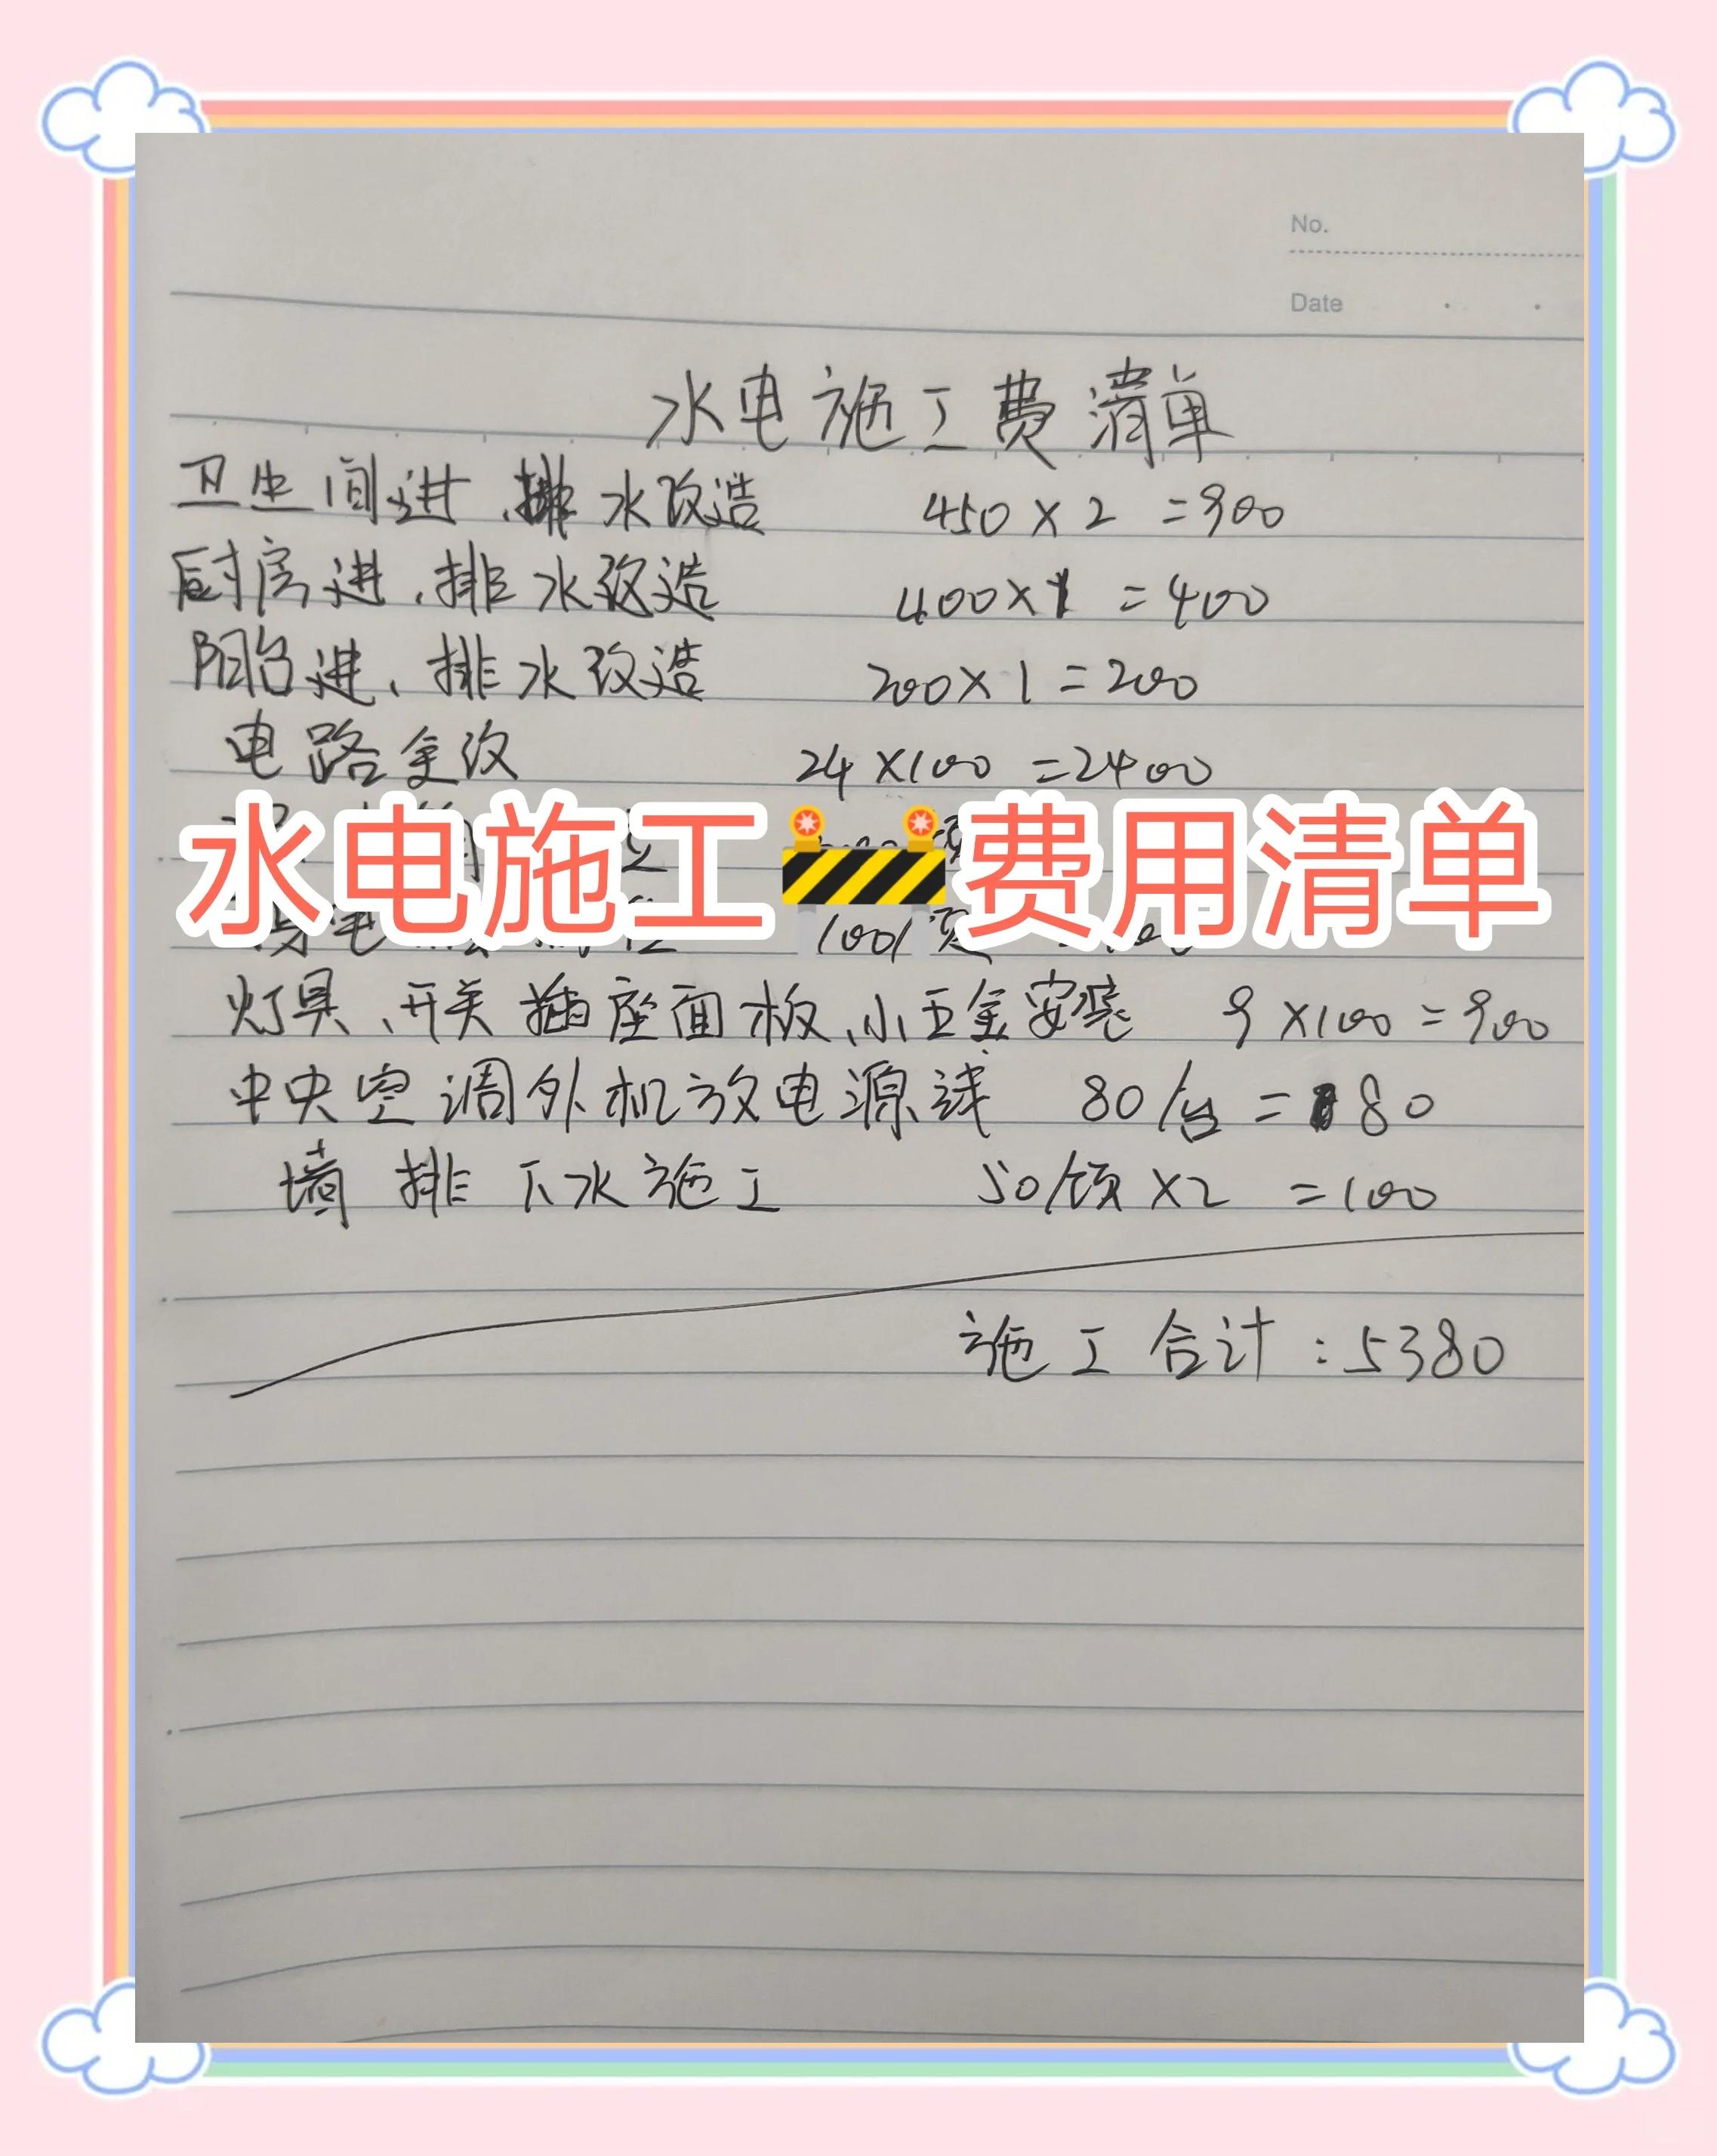 No.
Date
水电施工费清单
卫生间进、排水改造 450×2=900
厨房进、排水改造 400×1=400
阳台进、排水改造 200×1=200
电路全改 24×100=2400
水电施工🚧费用清单
100/项
灯具、开关插座面板、小五金安装 9×100=900
中央空调外机放电源线 80/台=80
墙排下水施工 50/项×2=100
施工合计:5380